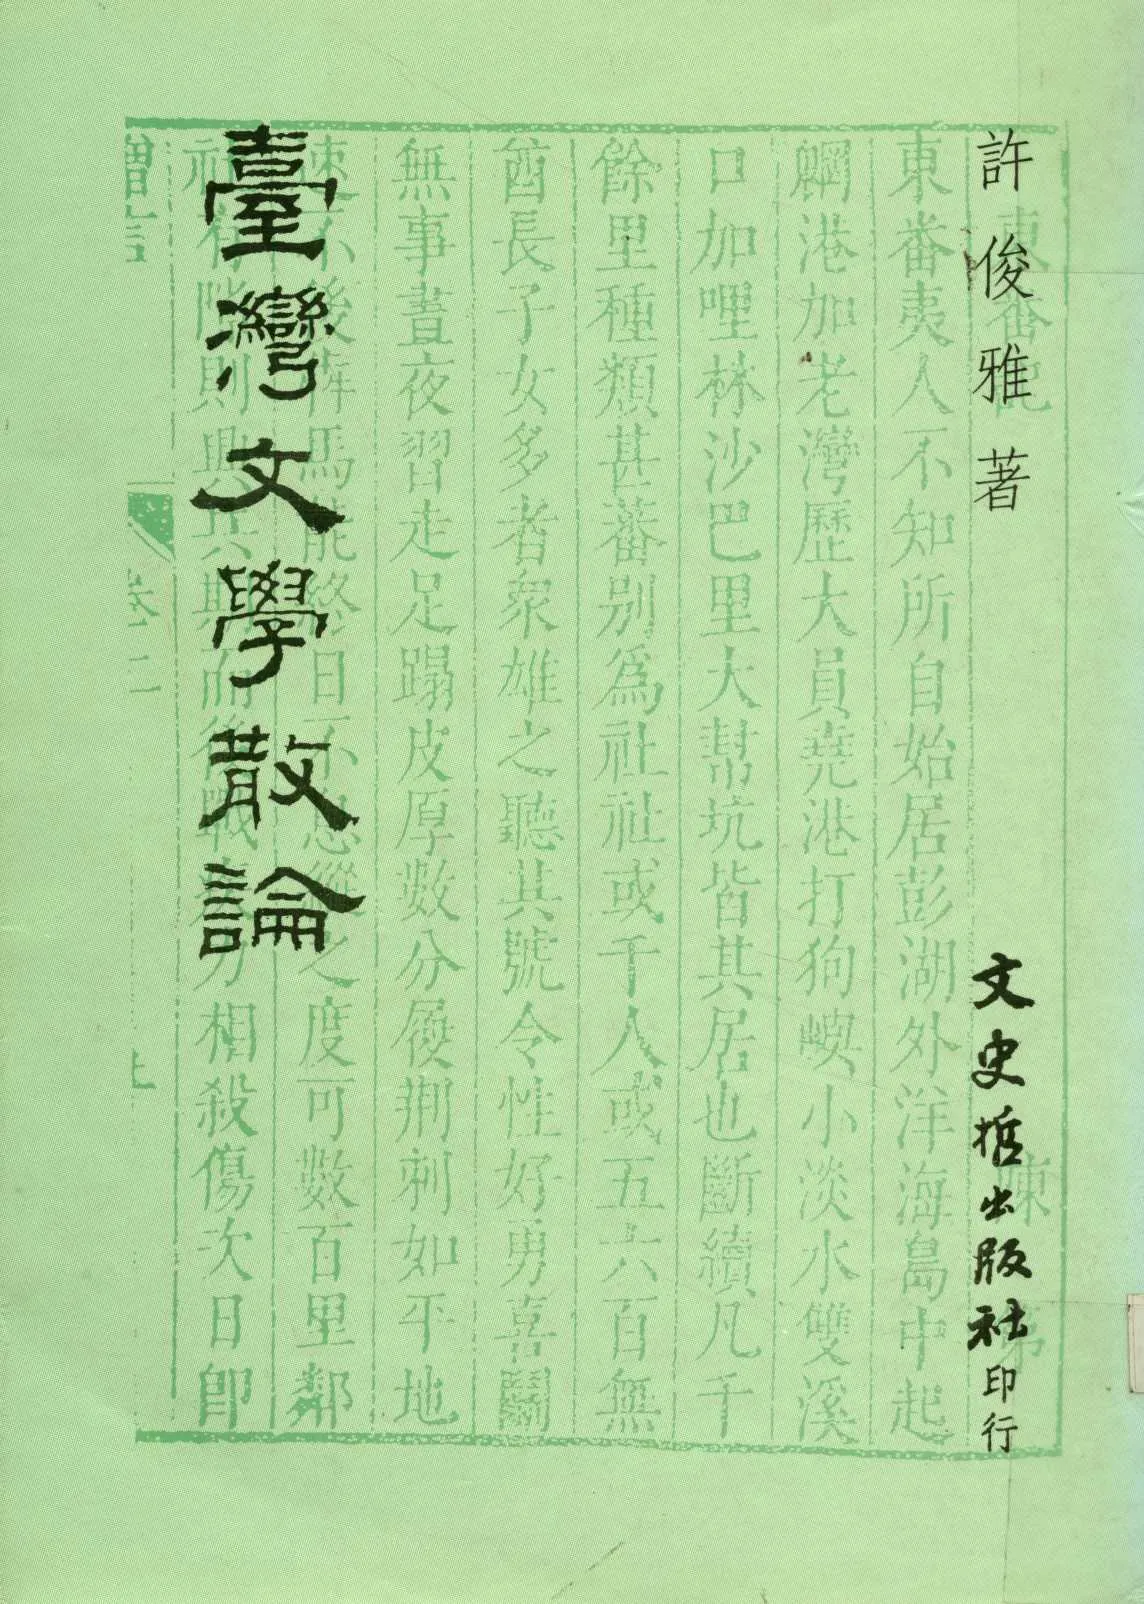 許俊雅著
文史哲出版社印行
臺灣文學散論
東番記 陳第
東番夷人不知所自始居彭湖外洋海島中起
魍港加老灣歷大員堯港打狗嶼小淡水雙溪
口加哩林沙巴里大幫坑皆其居也斷續凡千
餘里種類甚蕃別為社社或千人或五六百無
酋長子女多者衆雄之聽其號令性好勇喜鬭
無事晝夜習走足蹋皮厚數分履荊刺如平地
速不後犇馬能終日不息縱之度可數百里鄰
社有隙則興兵期而後戰疾力相殺傷次日即
卷二